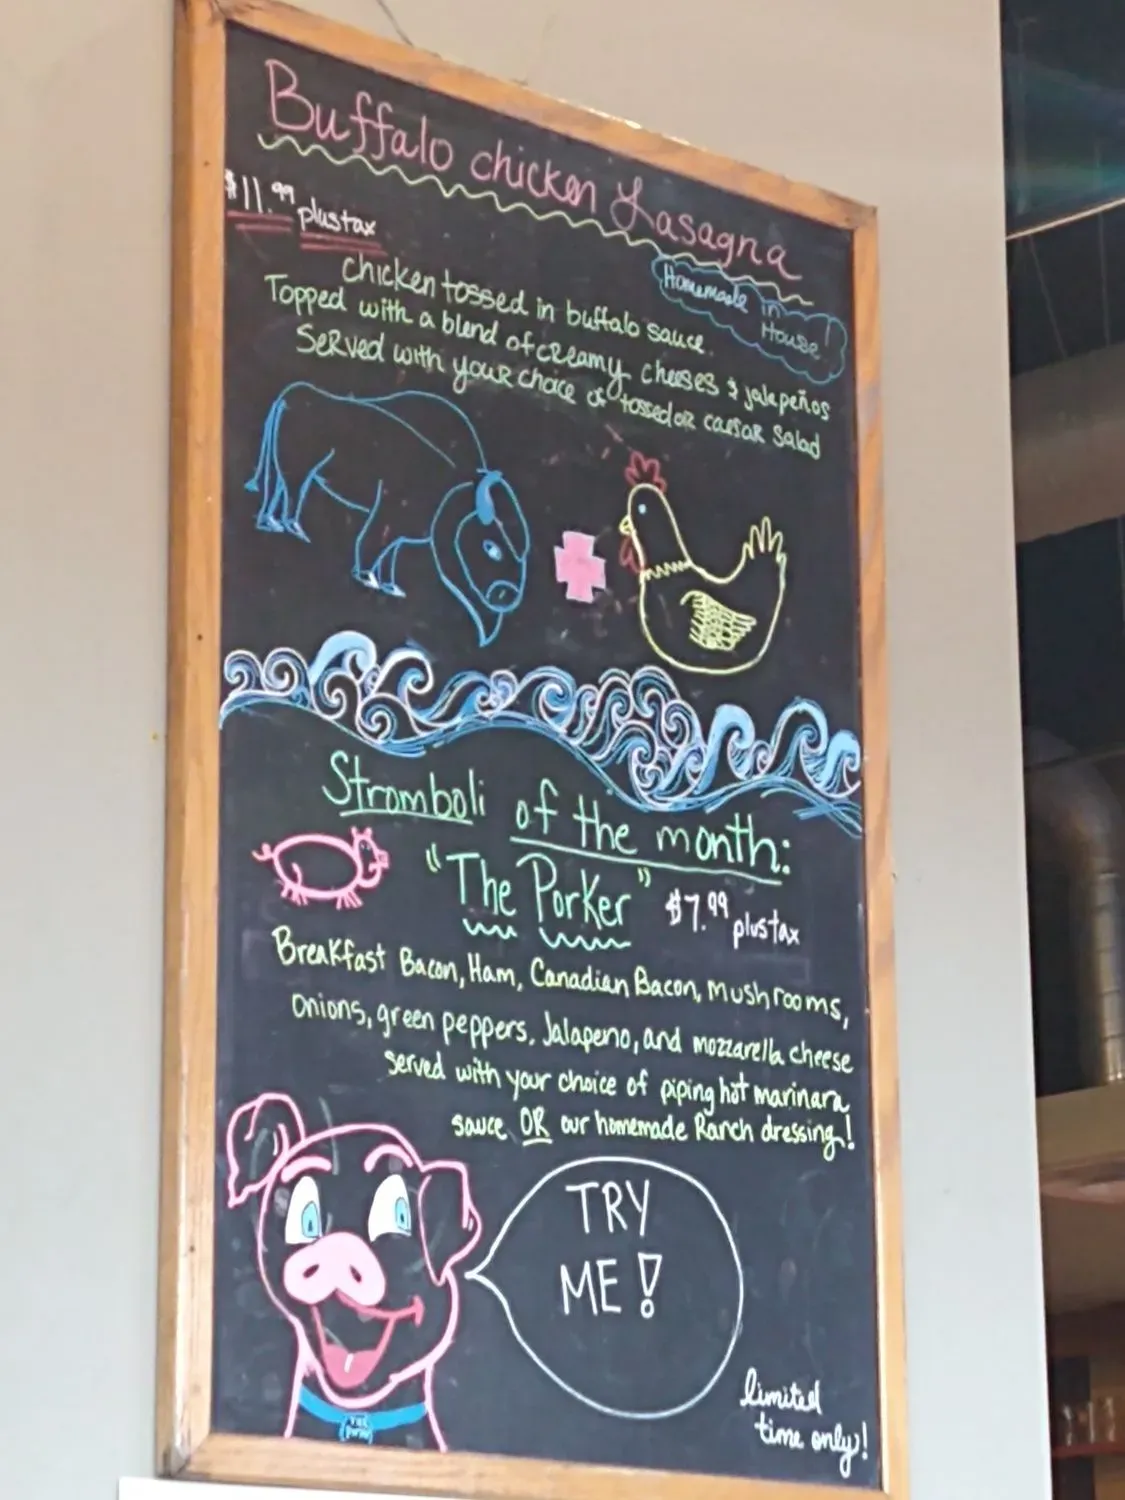 Buffalo chicken Lasagna
$11.99 plus tax
Homemade in House!
chicken tossed in buffalo sauce.
Topped with a blend of creamy cheeses & jalapeños
Served with your choice of tossed or caesar salad
Stromboli of the month:
"The Porker" $7.99 plus tax
Breakfast Bacon, Ham, Canadian Bacon, mushrooms,
onions, green peppers, Jalapeno, and mozzarella cheese
served with your choice of piping hot marinara
sauce OR our homemade Ranch dressing!
TRY
ME!
limited
time only!